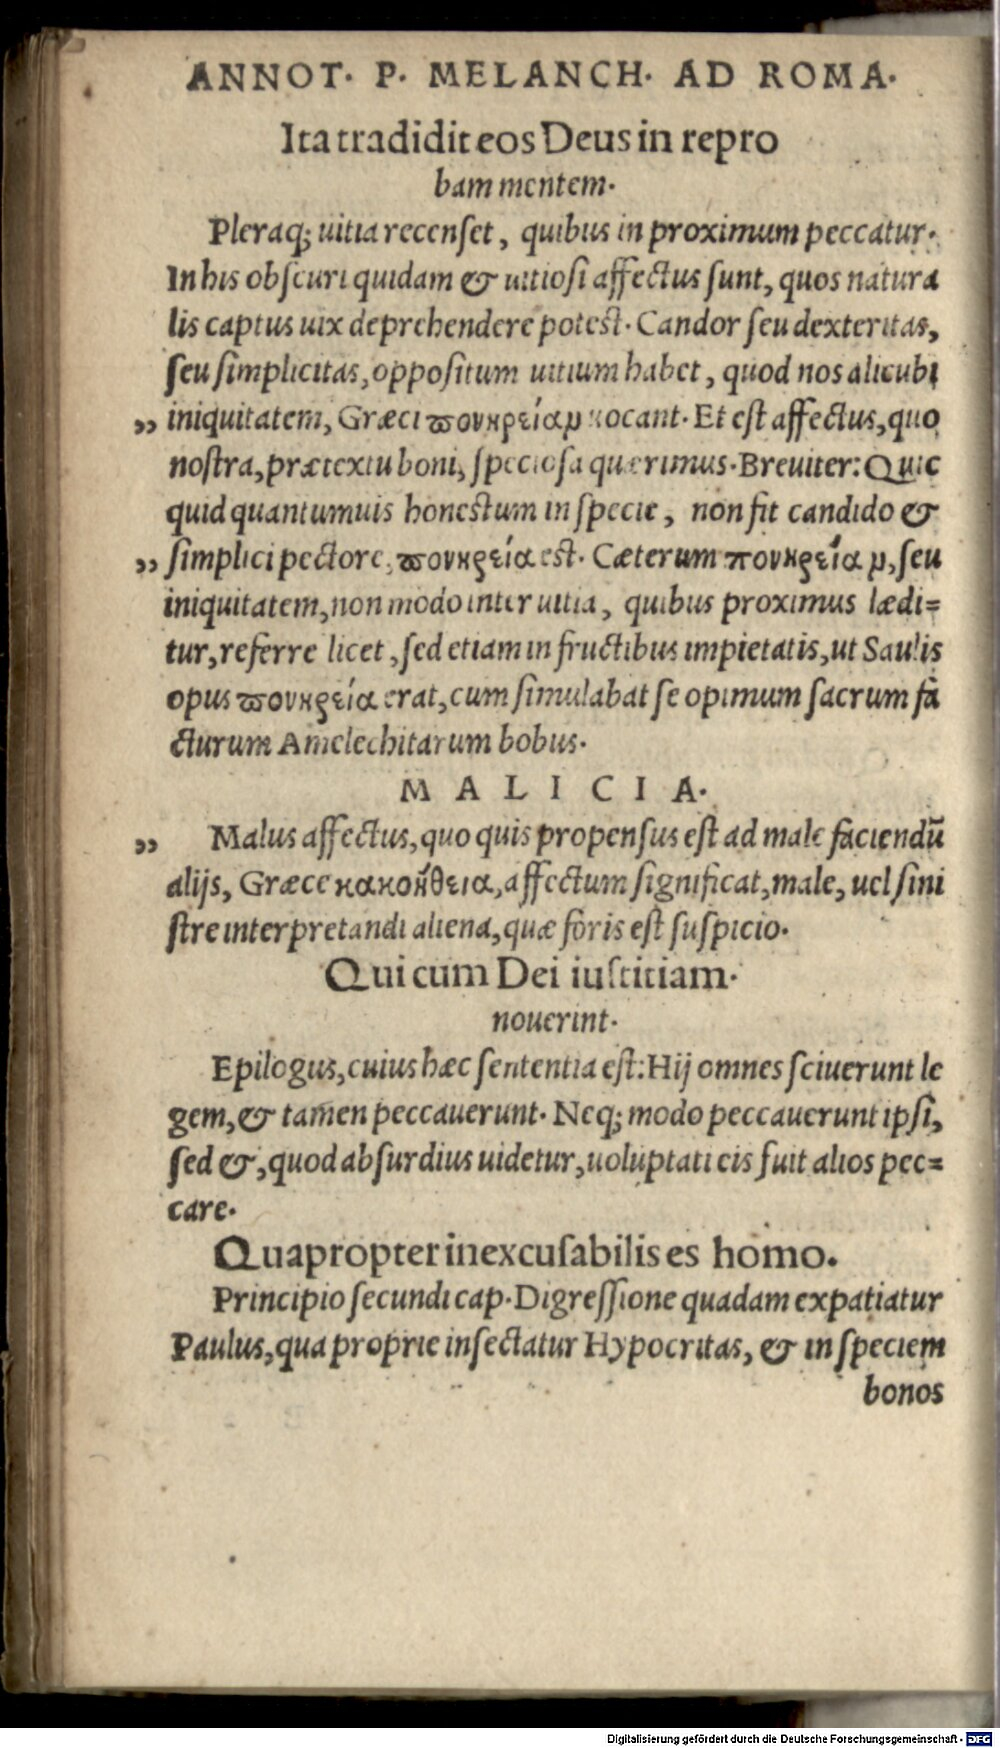 ANNOT. P. MELANCH. AD ROMA.
Ita tradidit eos Deus in repro
bam mentem.
Pleraq; uitia recenset, quibus in proximum peccatur.
In his obscuri quidam & uitiosi affectus sunt, quos natura
lis captus uix deprehendere potest. Candor seu dexteritas,
seu simplicitas, oppositum uitium habet, quod nos alicubi
„ iniquitatem, Græci πονηρείαν uocant. Et est affectus, quo
nostra, prætextu boni, speciosa quærimus. Breuiter: Quic
quid quantumuis honestum in specie, non fit candido &
„ simplici pectore, πονηρεία est. Cæterum πονηρείαν, seu
iniquitatem, non modo inter uitia, quibus proximus lædi=
tur, referre licet, sed etiam in fructibus impietatis, ut Saulis
opus πονηρεία erat, cum simulabat se opimum sacrum fa
cturum Amelechitarum bobus.
MALICIA.
„ Malus affectus, quo quis propensus est ad male faciendū
alijs, Græce κακοήθεια, affectum significat, male, uel sini
stre interpretandi aliena, quæ foris est suspicio.
Qui cum Dei iustitiam.
nouerint.
Epilogus, cuius hæc sententia est: Hij omnes sciuerunt le
gem, & tamen peccauerunt. Neq; modo peccauerunt ipsi,
sed &, quod absurdius uidetur, uoluptati eis fuit alios pec=
care.
Quapropter inexcusabilis es homo.
Principio secundi cap. Digressione quadam expatiatur
Paulus, qua proprie insectatur Hypocritas, & in speciem
bonos
Digitalisierung gefördert durch die Deutsche Forschungsgemeinschaft - DFG